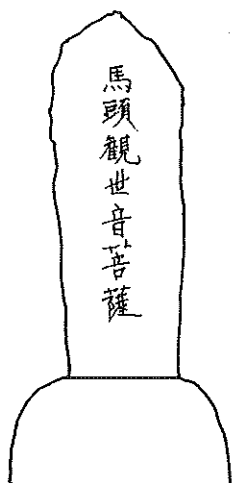 馬頭観世音菩薩